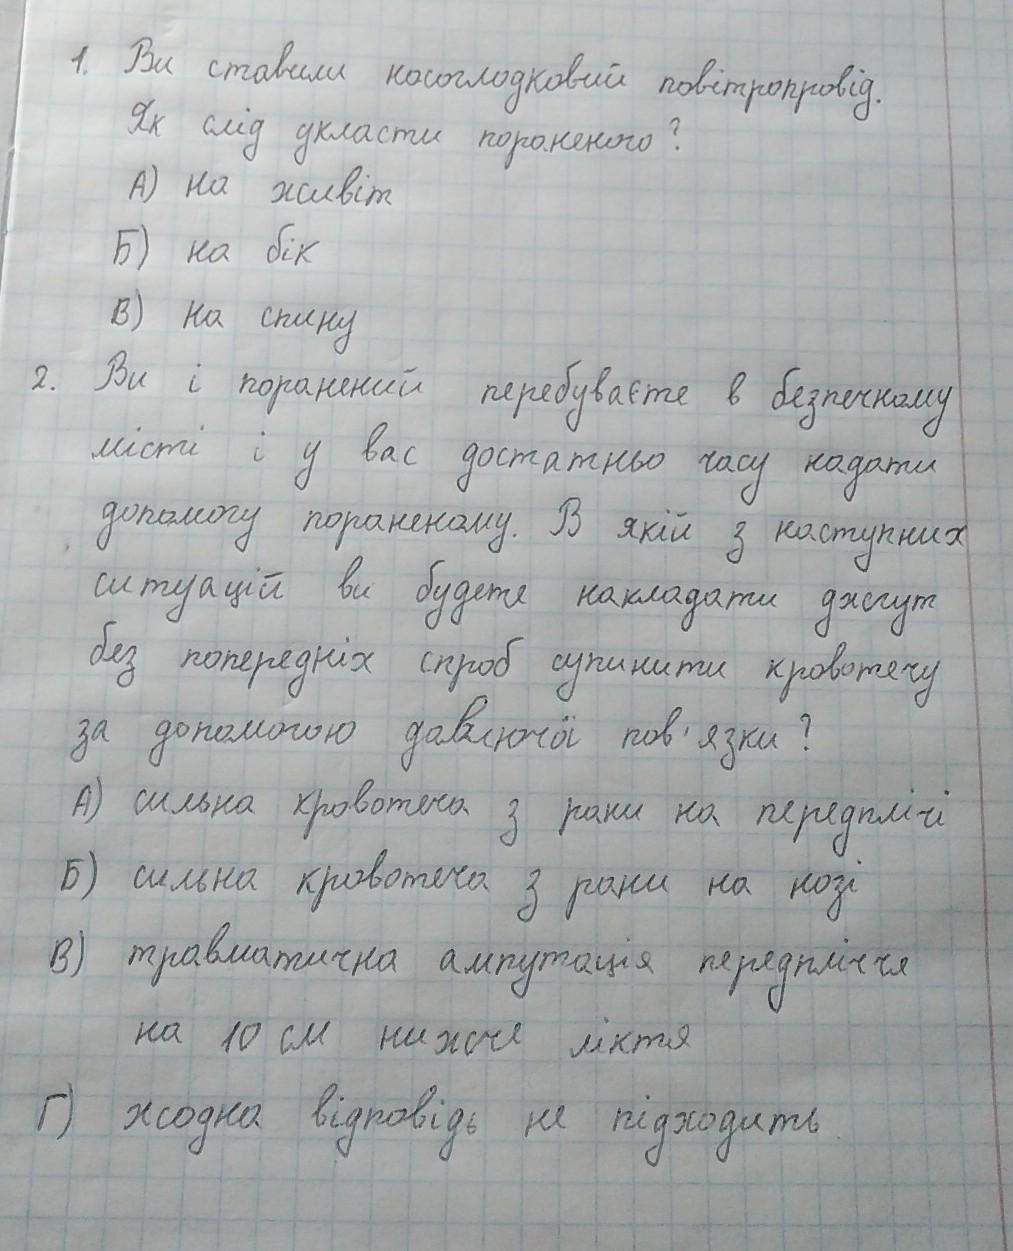 1. Ви ставили носоглодковий повітропровід.
Як слід укласти пораненого?
А) на живіт
Б) на бік
В) на спину
2. Ви і поранений перебуваєте в безпечному
місті і у вас достатньо часу надати
допомогу пораненому. В якій з наступних
ситуацій ви будете накладати джгут
без попередніх спроб супинити кровотечу
за допомогою давлючої пов'язки?
А) сильна кровотеча з рани на передплічі
Б) сильна кровотеча з рани на нозі
В) травматична ампутація передпліччя
на 10 см нижче ліктя
Г) жодна відповідь не підходить